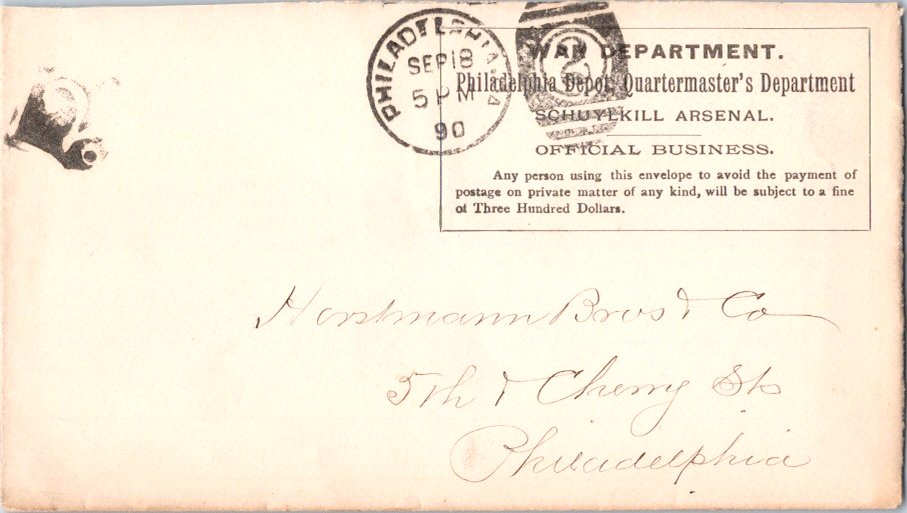 PHILADELPHIA. PA
SEP 18
5 PM
90
2
WAR DEPARTMENT.
Philadelphia Depot, Quartermaster's Department
SCHUYLKILL ARSENAL.
OFFICIAL BUSINESS.
Any person using this envelope to avoid the payment of
postage on private matter of any kind, will be subject to a fine
of Three Hundred Dollars.
Horstmann Bros & Co
5th & Cherry Sts
Philadelphia